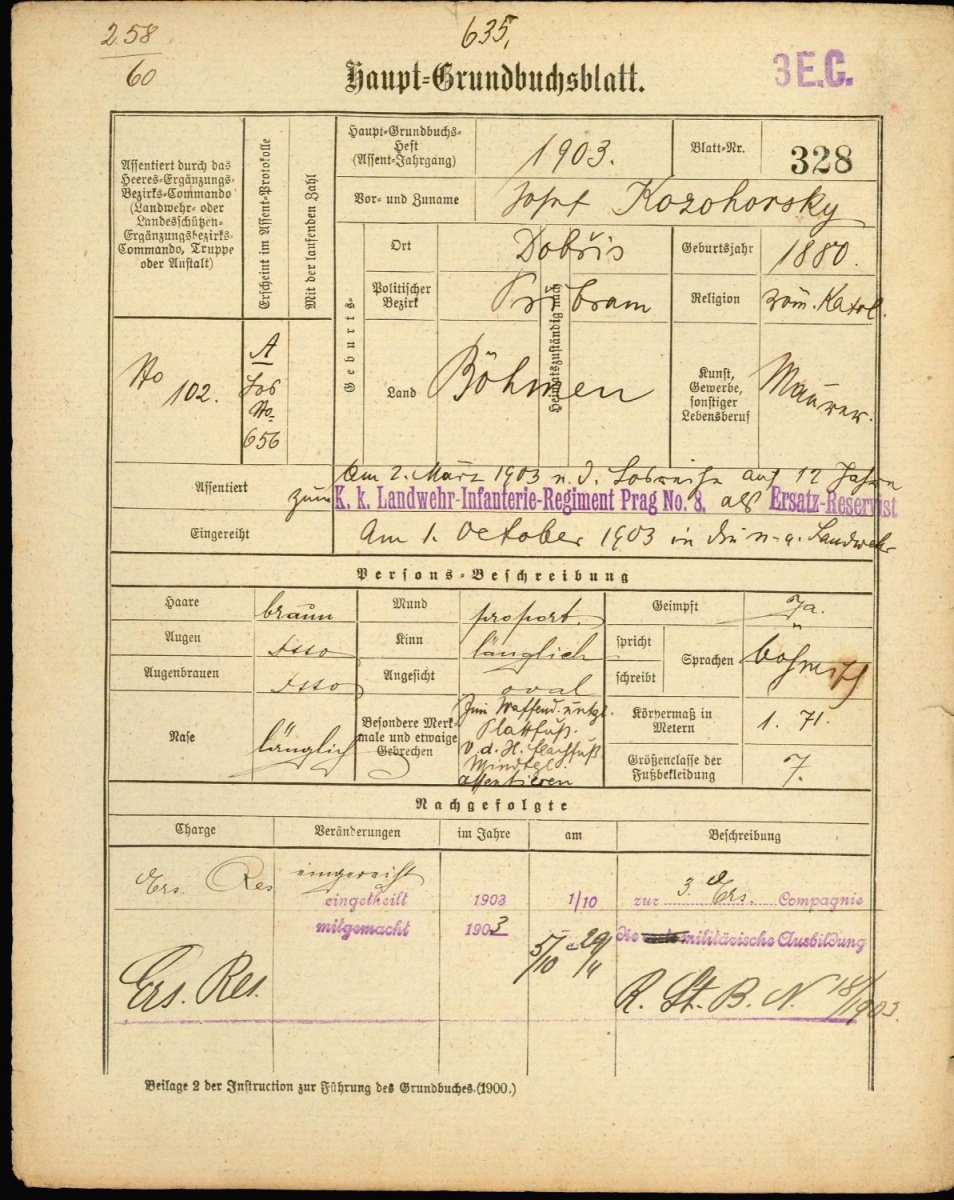 258
60
635.
3 E.C.
Haupt-Grundbuchsblatt.
Assentiert durch das
Heeres-Ergänzungs-
Bezirks-Commando
(Landwehr- oder
Landesschützen-
Ergänzungsbezirks-
Commando, Truppe
oder Anstalt)
Erscheint im Assent-Protokolle
Mit der laufenden Zahl
Haupt-Grundbuchs-
Heft
(Assent-Jahrgang)
1903.
Blatt-Nr.
328
Vor- und Zuname
Josef Kozohorsky
Geburts-
Heimatszuständig nach
Ort
Dobřis
Geburtsjahr
1880.
Politischer
Bezirk
Přibram
Religion
röm. Katol.
Land
Böhmen
Kunst,
Gewerbe,
sonstiger
Lebensberuf
Maurer.
No 102.
A
Los
No.
656
Assentiert
Am 2. März 1903 n. d. Losreihe auf 12 Jahre
zum K. k. Landwehr-Infanterie-Regiment Prag No. 8. als Ersatz-Reservist
Eingereiht
Am 1. October 1903 in die n. a. Landwehr
Persons-Beschreibung
Haare
braun
Mund
proport.
Geimpft
Ja.
Augen
dtto
Kinn
länglich
spricht
schreibt
Sprachen
böhmisch
Augenbrauen
dtto
Angesicht
oval
Nase
länglich
Besondere Merk-
male und etwaige
Gebrechen
Zum Waffend.
Plattfuß.
Mindtgl.
assentieren
Körpermaß in
Metern
1. 71.
Größenclasse der
Fußbekleidung
7.
Nachgefolgte
Charge
Veränderungen
im Jahre
am
Beschreibung
Ers. Res.
eingereiht
eingetheilt
1903
1/10
zur 3. Ers. Compagnie
mitgemacht
1903
5/10 29/11
die militärische Ausbildung
Ers. Res.
R. St. B. N. 18/1903.
Beilage 2 der Instruction zur Führung des Grundbuches. (1900.)